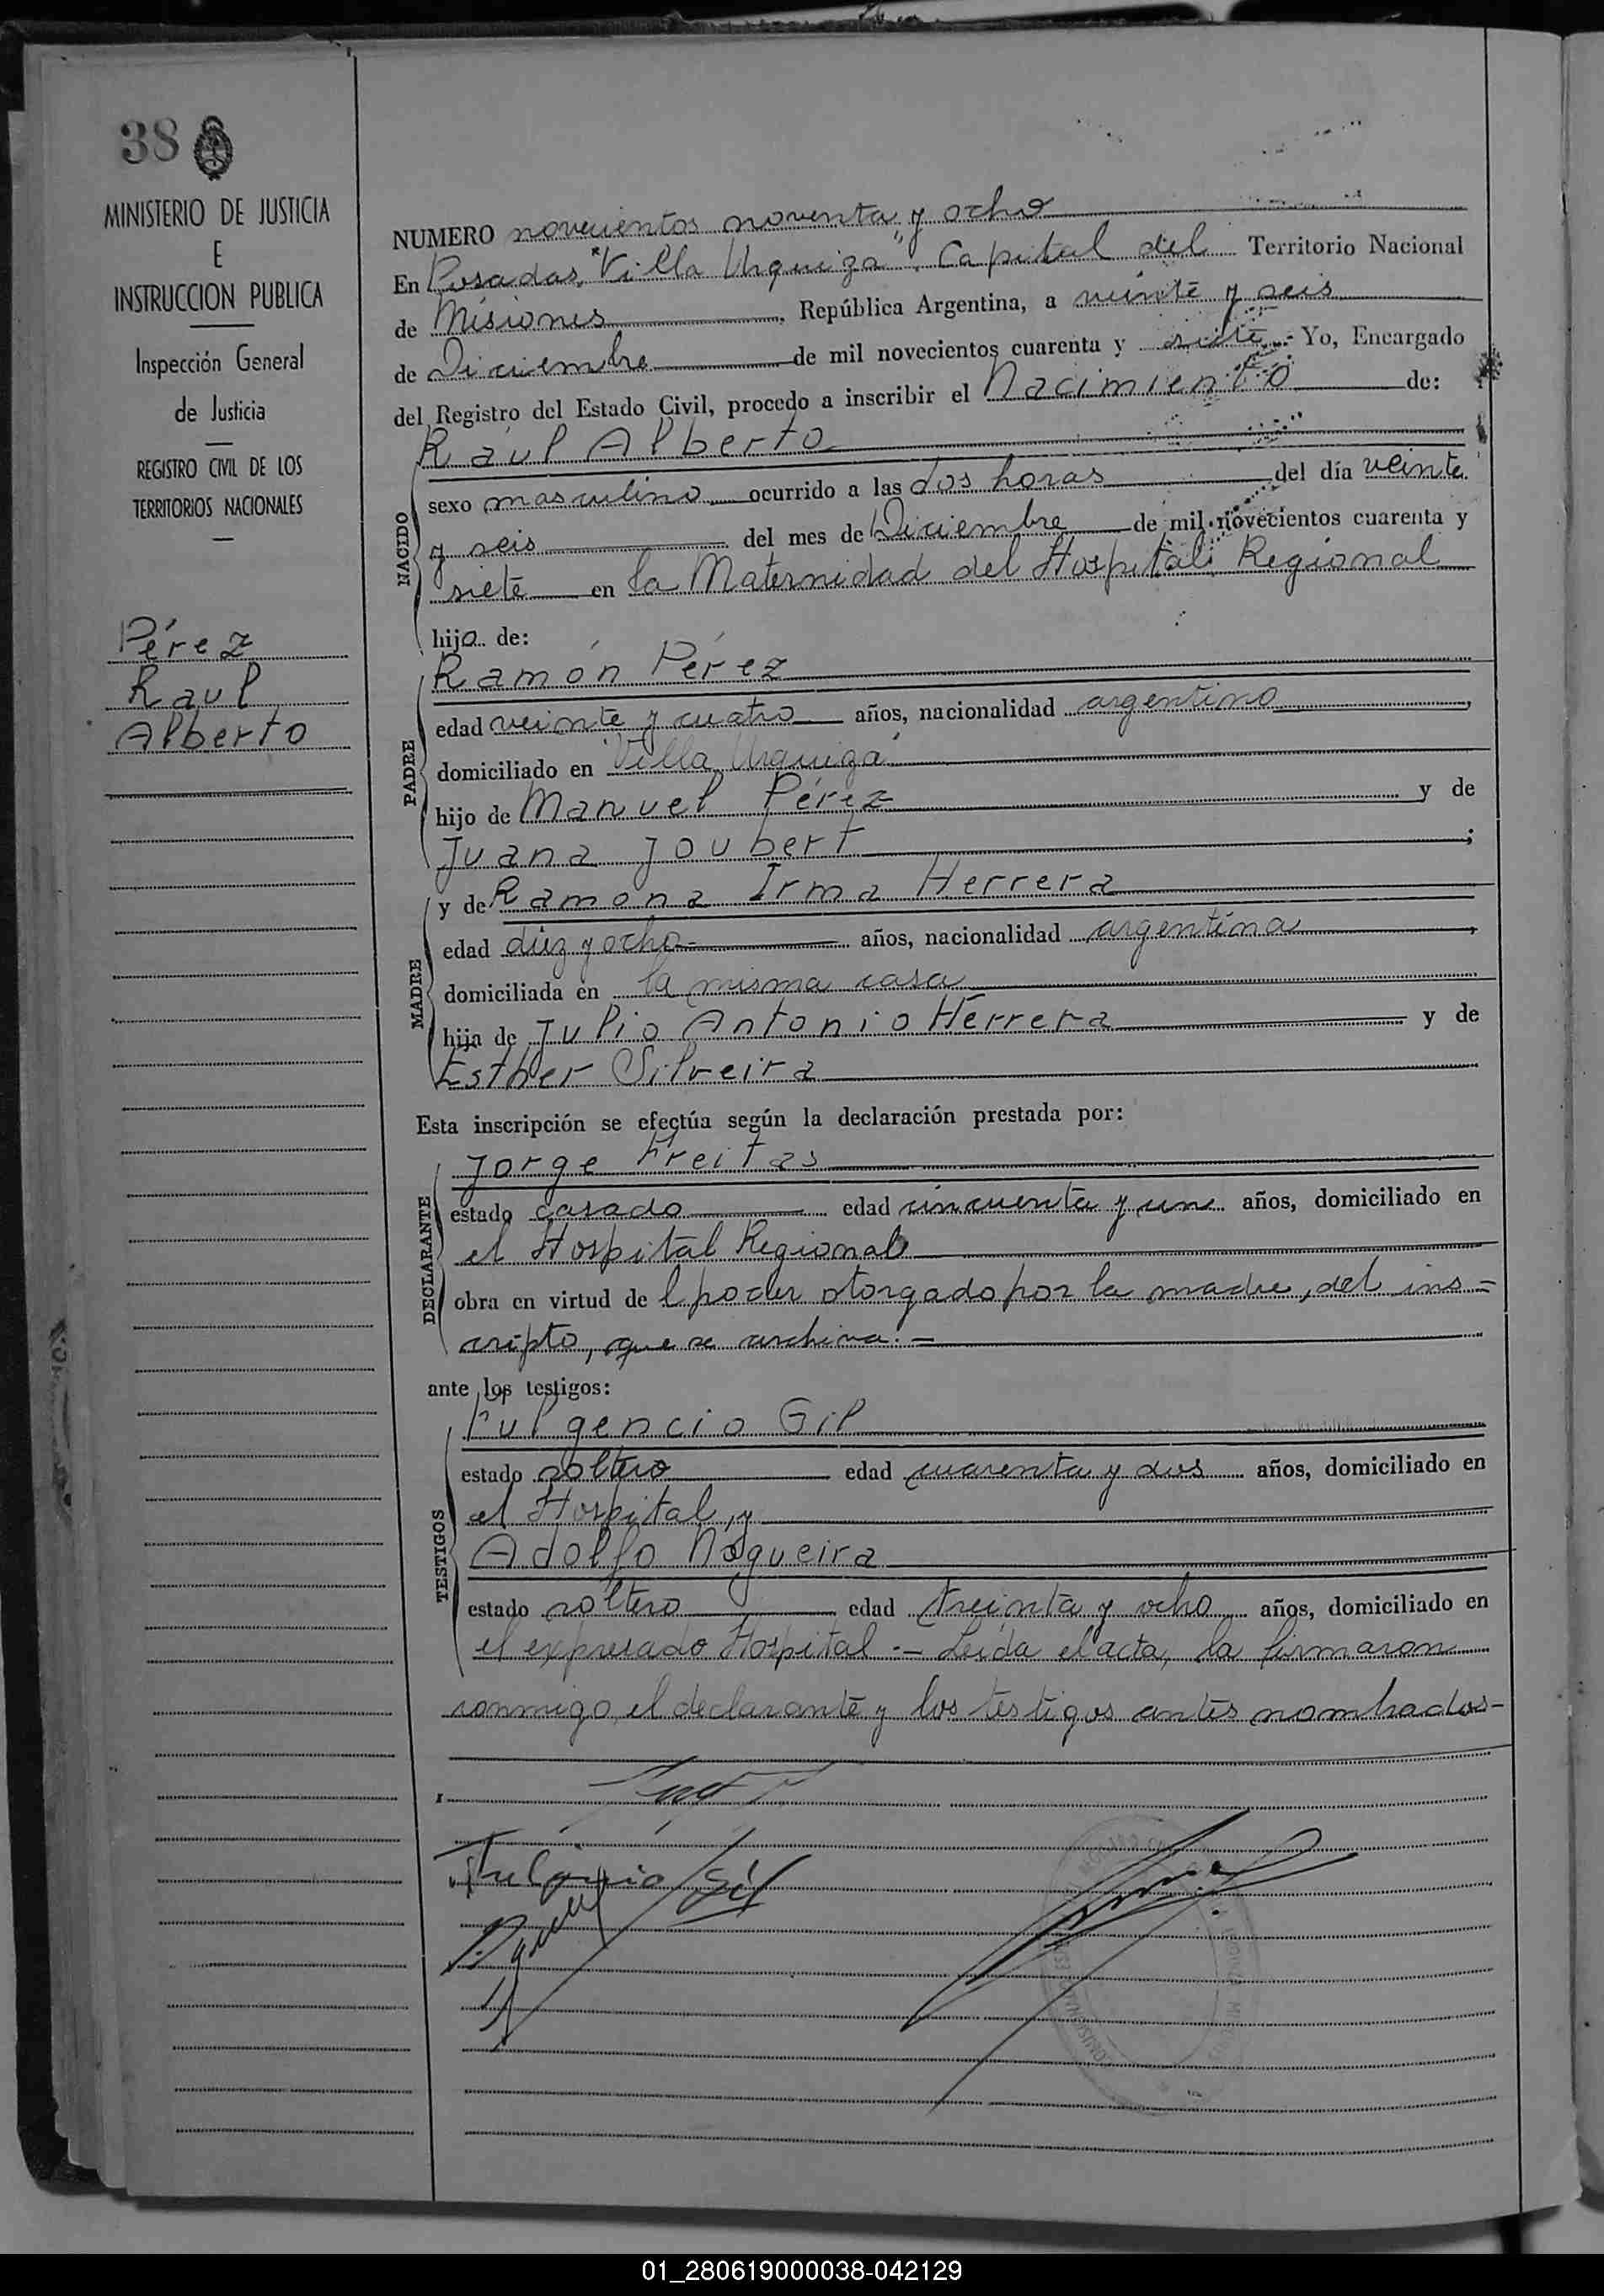 38
MINISTERIO DE JUSTICIA
E
INSTRUCCION PUBLICA
Inspección General
de Justicia
REGISTRO CIVIL DE LOS
TERRITORIOS NACIONALES
Pérez
Raul
Alberto
NUMERO novecientos noventa y ocho
En Posadas, "Villa Urquiza", Capital del Territorio Nacional
de Misiones, República Argentina, a veinte y seis
de Diciembre de mil novecientos cuarenta y siete.- Yo, Encargado
del Registro del Estado Civil, procedo a inscribir el Nacimiento de:
NACIDO
Raúl Alberto
sexo masculino ocurrido a las dos horas del día veinte
y seis del mes de Diciembre de mil novecientos cuarenta y
siete en la Maternidad del Hospital Regional
hijo de:
PADRE
Ramón Pérez
edad veinte y cuatro años, nacionalidad argentino,
domiciliado en "Villa Urquiza"
hijo de Manuel Pérez y de
Juana Joubert;
MADRE
y de Ramona Irma Herrera
edad diez y ocho años, nacionalidad argentina,
domiciliada en la misma casa
hija de Julio Antonio Herrera y de
Esther Silveira
Esta inscripción se efectúa según la declaración prestada por:
DECLARANTE
Jorge Freitas
estado casado edad cincuenta y un años, domiciliado en
el Hospital Regional
obra en virtud de l poder otorgado por la madre, del ins=
cripto, que se archiva.=
ante los testigos:
TESTIGOS
Fulgencio Gil
estado soltero edad cuarenta y dos años, domiciliado en
el Hospital, y
Adolfo Nogueira
estado soltero edad treinta y ocho años, domiciliado en
el expresado Hospital.- Leida el acta, la firmaron
conmigo, el declarante y los testigos antes nombrados-
Fulgencio Gil
01_280619000038-042129